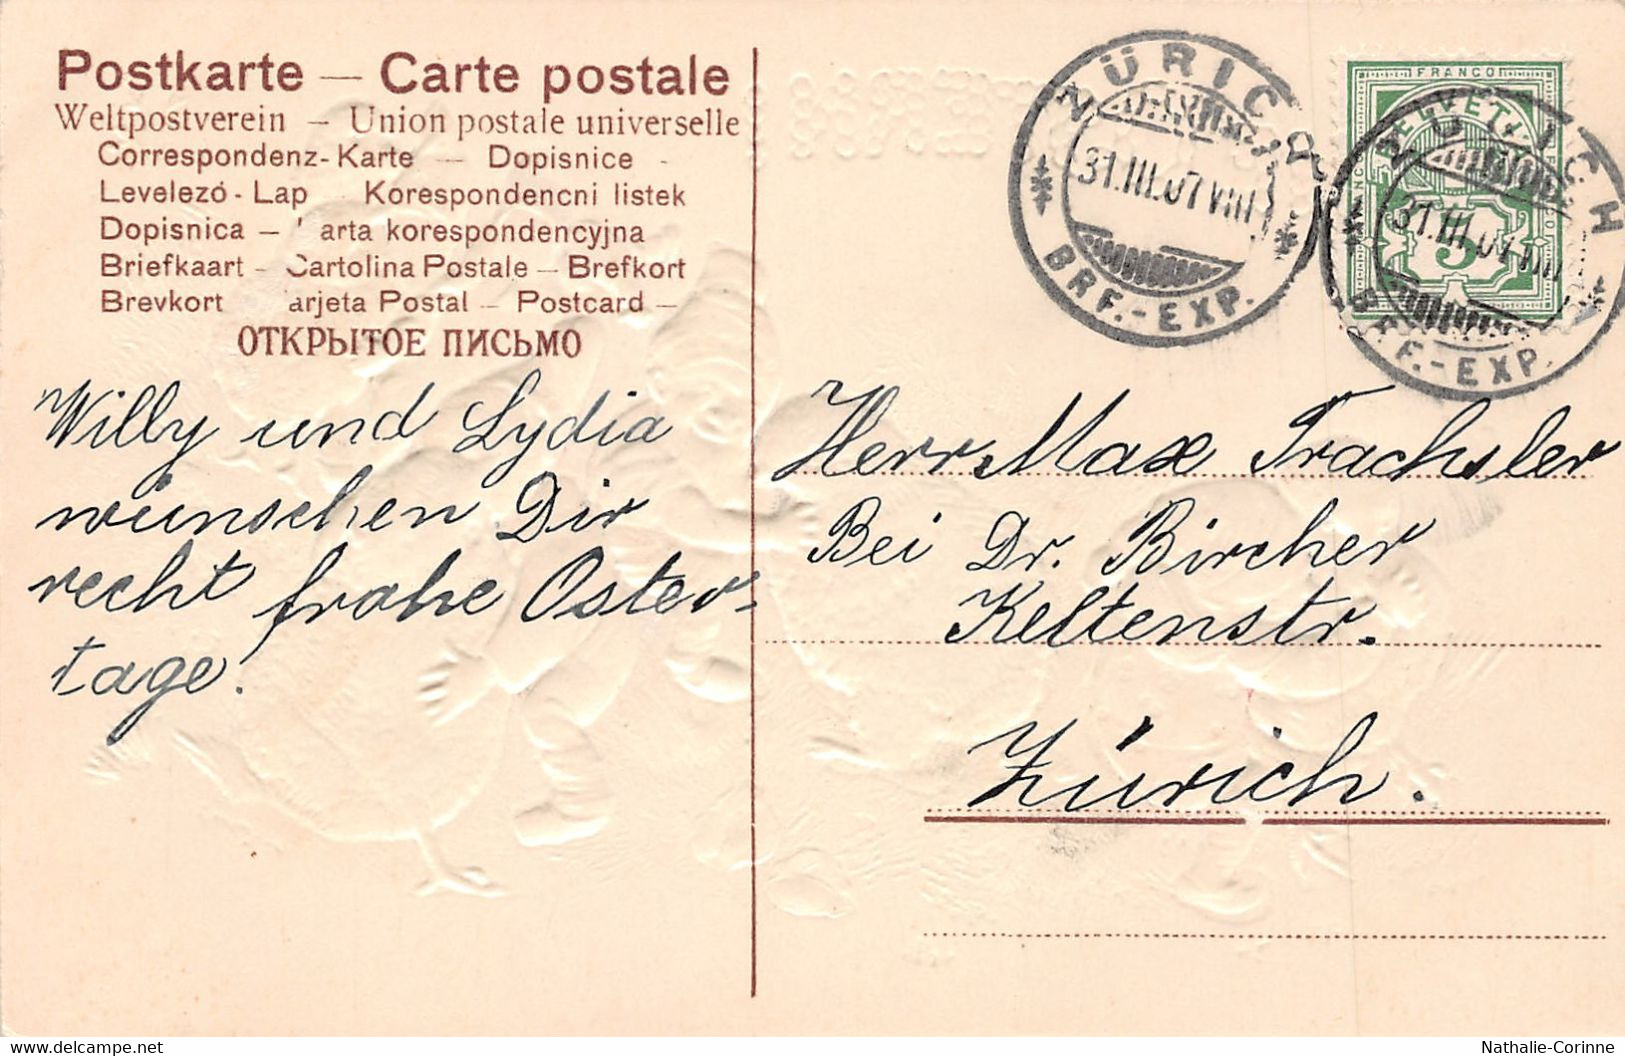 Postkarte — Carte postale
Weltpostverein — Union postale universelle
Correspondenz-Karte — Dopisnice -
Levelező-Lap Korespondencni listek
Dopisnica — arta korespondencyjna
Briefkaart - Cartolina Postale — Brefkort
Brevkort arjeta Postal — Postcard —
ОТКРЫТОЕ ПИСЬМО
Willy und Lydia
wünschen Dir
recht frohe Oster-
tage.
ZÜRICH
31.III.07 VIII
BRF.-EXP.
FRANCO
HELVETIA
5
ZÜRICH
31.III.07 VIII
BRF.-EXP.
Herr Max Trachsler
Bei Dr. Bircher
Keltenstr.
Zürich.
delcampe.net
Nathalie-Corinne